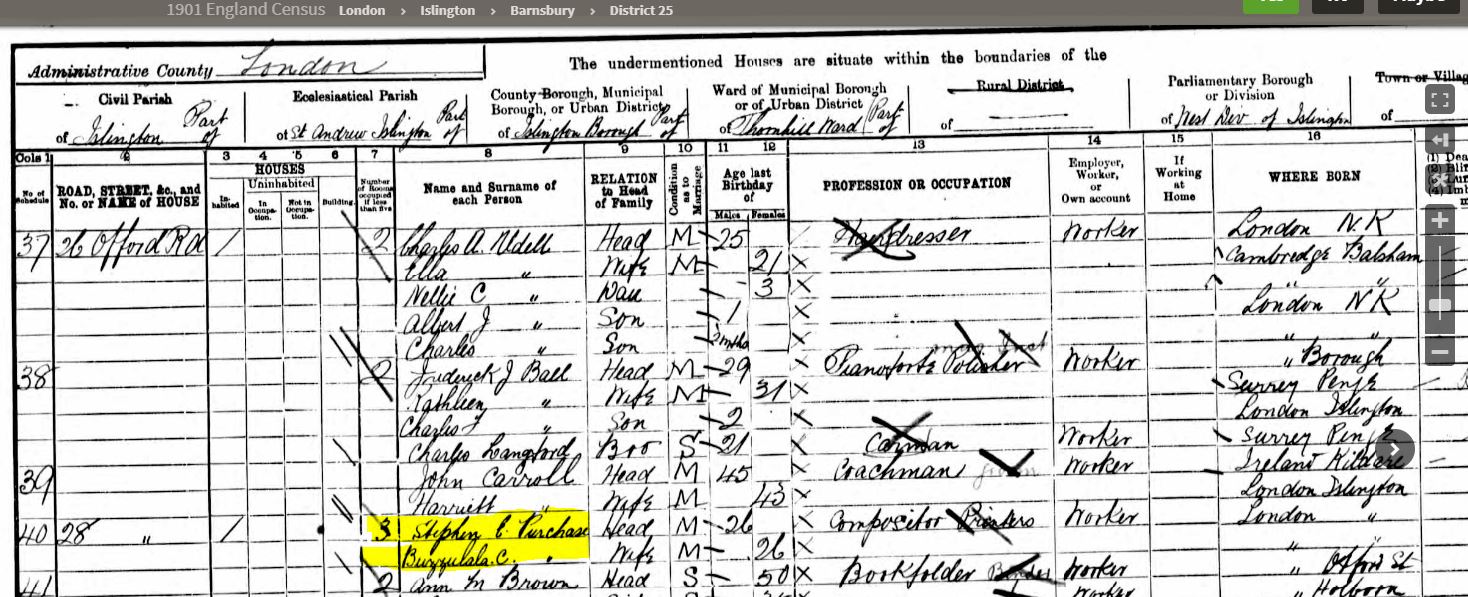 1901 England Census London > Islington > Barnsbury > District 25
Administrative County London
The undermentioned Houses are situate within the boundaries of the
Civil Parish
of Islington Part of
Ecclesiastical Parish
of St Andrew Islington Part of
County Borough, Municipal Borough, or Urban District
of Islington Borough Part of
Ward of Municipal Borough or of Urban District
of Thornhill Ward Part of
Rural District
of
Parliamentary Borough or Division
of West Div of Islington
Town or
of
Cols 1 2 3 4 5 6 7 8 9 10 11 12 13 14 15 16
No. of Schedule
ROAD, STREET, &c., and No. or NAME of HOUSE
HOUSES
Inhabited
Uninhabited
In Occupation.
Not in Occupation.
Building.
Number of Rooms occupied if less than five
Name and Surname of each Person
RELATION to Head of Family
Condition as to Marriage
Age last Birthday of
Males Females
PROFESSION OR OCCUPATION
Employer, Worker, or Own account
If Working at Home
WHERE BORN
37 26 Offord Rd 1 2 Charles A. Udell Head M 25 Hairdresser Worker London N.K
Ella " Wife M 21 X Cambredge Balsham
Nellie C " Dau 3 X " "
Albert J " Son 1 X London N K
Charles " Son 2 mths X " "
38 2 Frederick J Ball Head M 29 X Pianoforte Polisher Worker " Borough
Kathleen " Wife M 31 X Surrey Penge
Charles F " Son 2 X London Islington
Charles Langford Bro S 21 X Carman Worker Surrey Penge
39 John Carroll Head M 45 X Coachman Worker Ireland Kildare
Harriett " Wife M 43 X London Islington
40 28 " 1 3 Stephen C. Purchase Head M 26 X Compositor Printers Worker London "
C. " Wife M 26 X " "
41 2 Ann M Brown Head S 50 X Bookfolder Worker "
Worker " Holborn